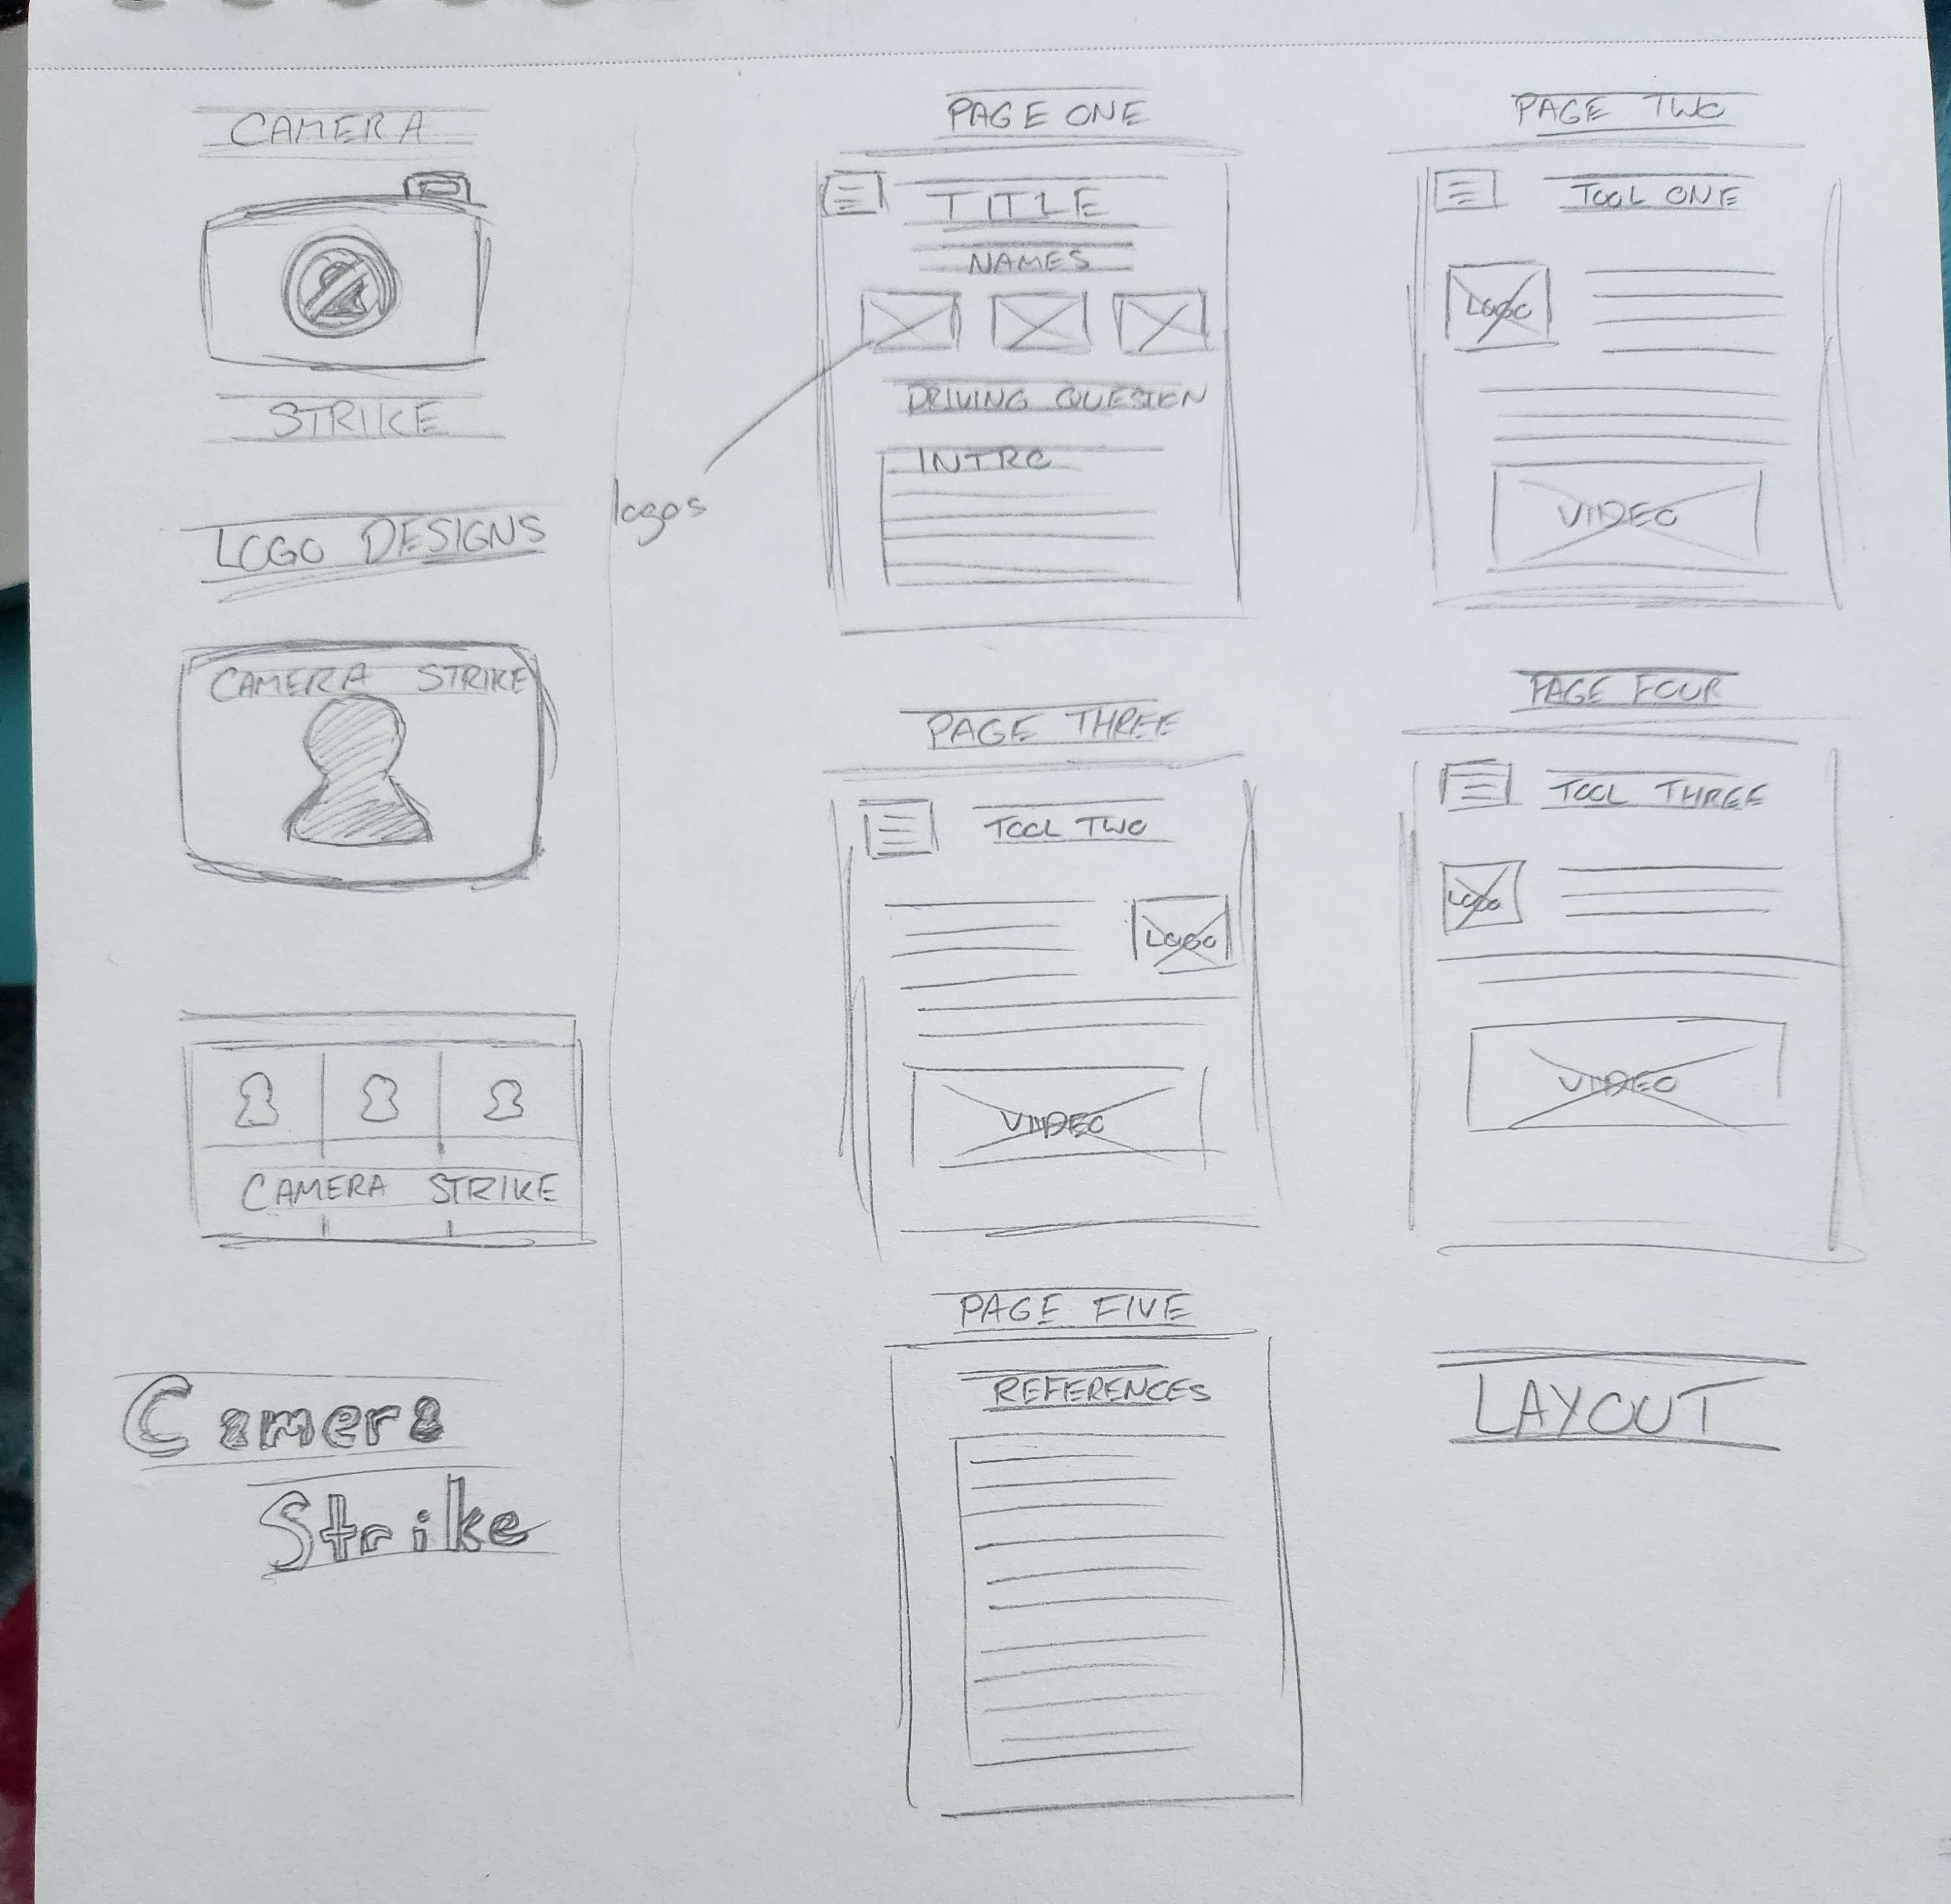 CAMERA
STRIKE
LOGO DESIGNS
CAMERA STRIKE
CAMERA STRIKE
Camera
Strike
logos
PAGE ONE
TITLE
NAMES
DRIVING QUESTEN
INTRO
PAGE TWO
TOOL ONE
LOGO
VIDEO
PAGE THREE
TOOL TWO
LOGO
VIDEO
PAGE FOUR
TOOL THREE
LOGO
VIDEO
PAGE FIVE
REFERENCES
LAYOUT